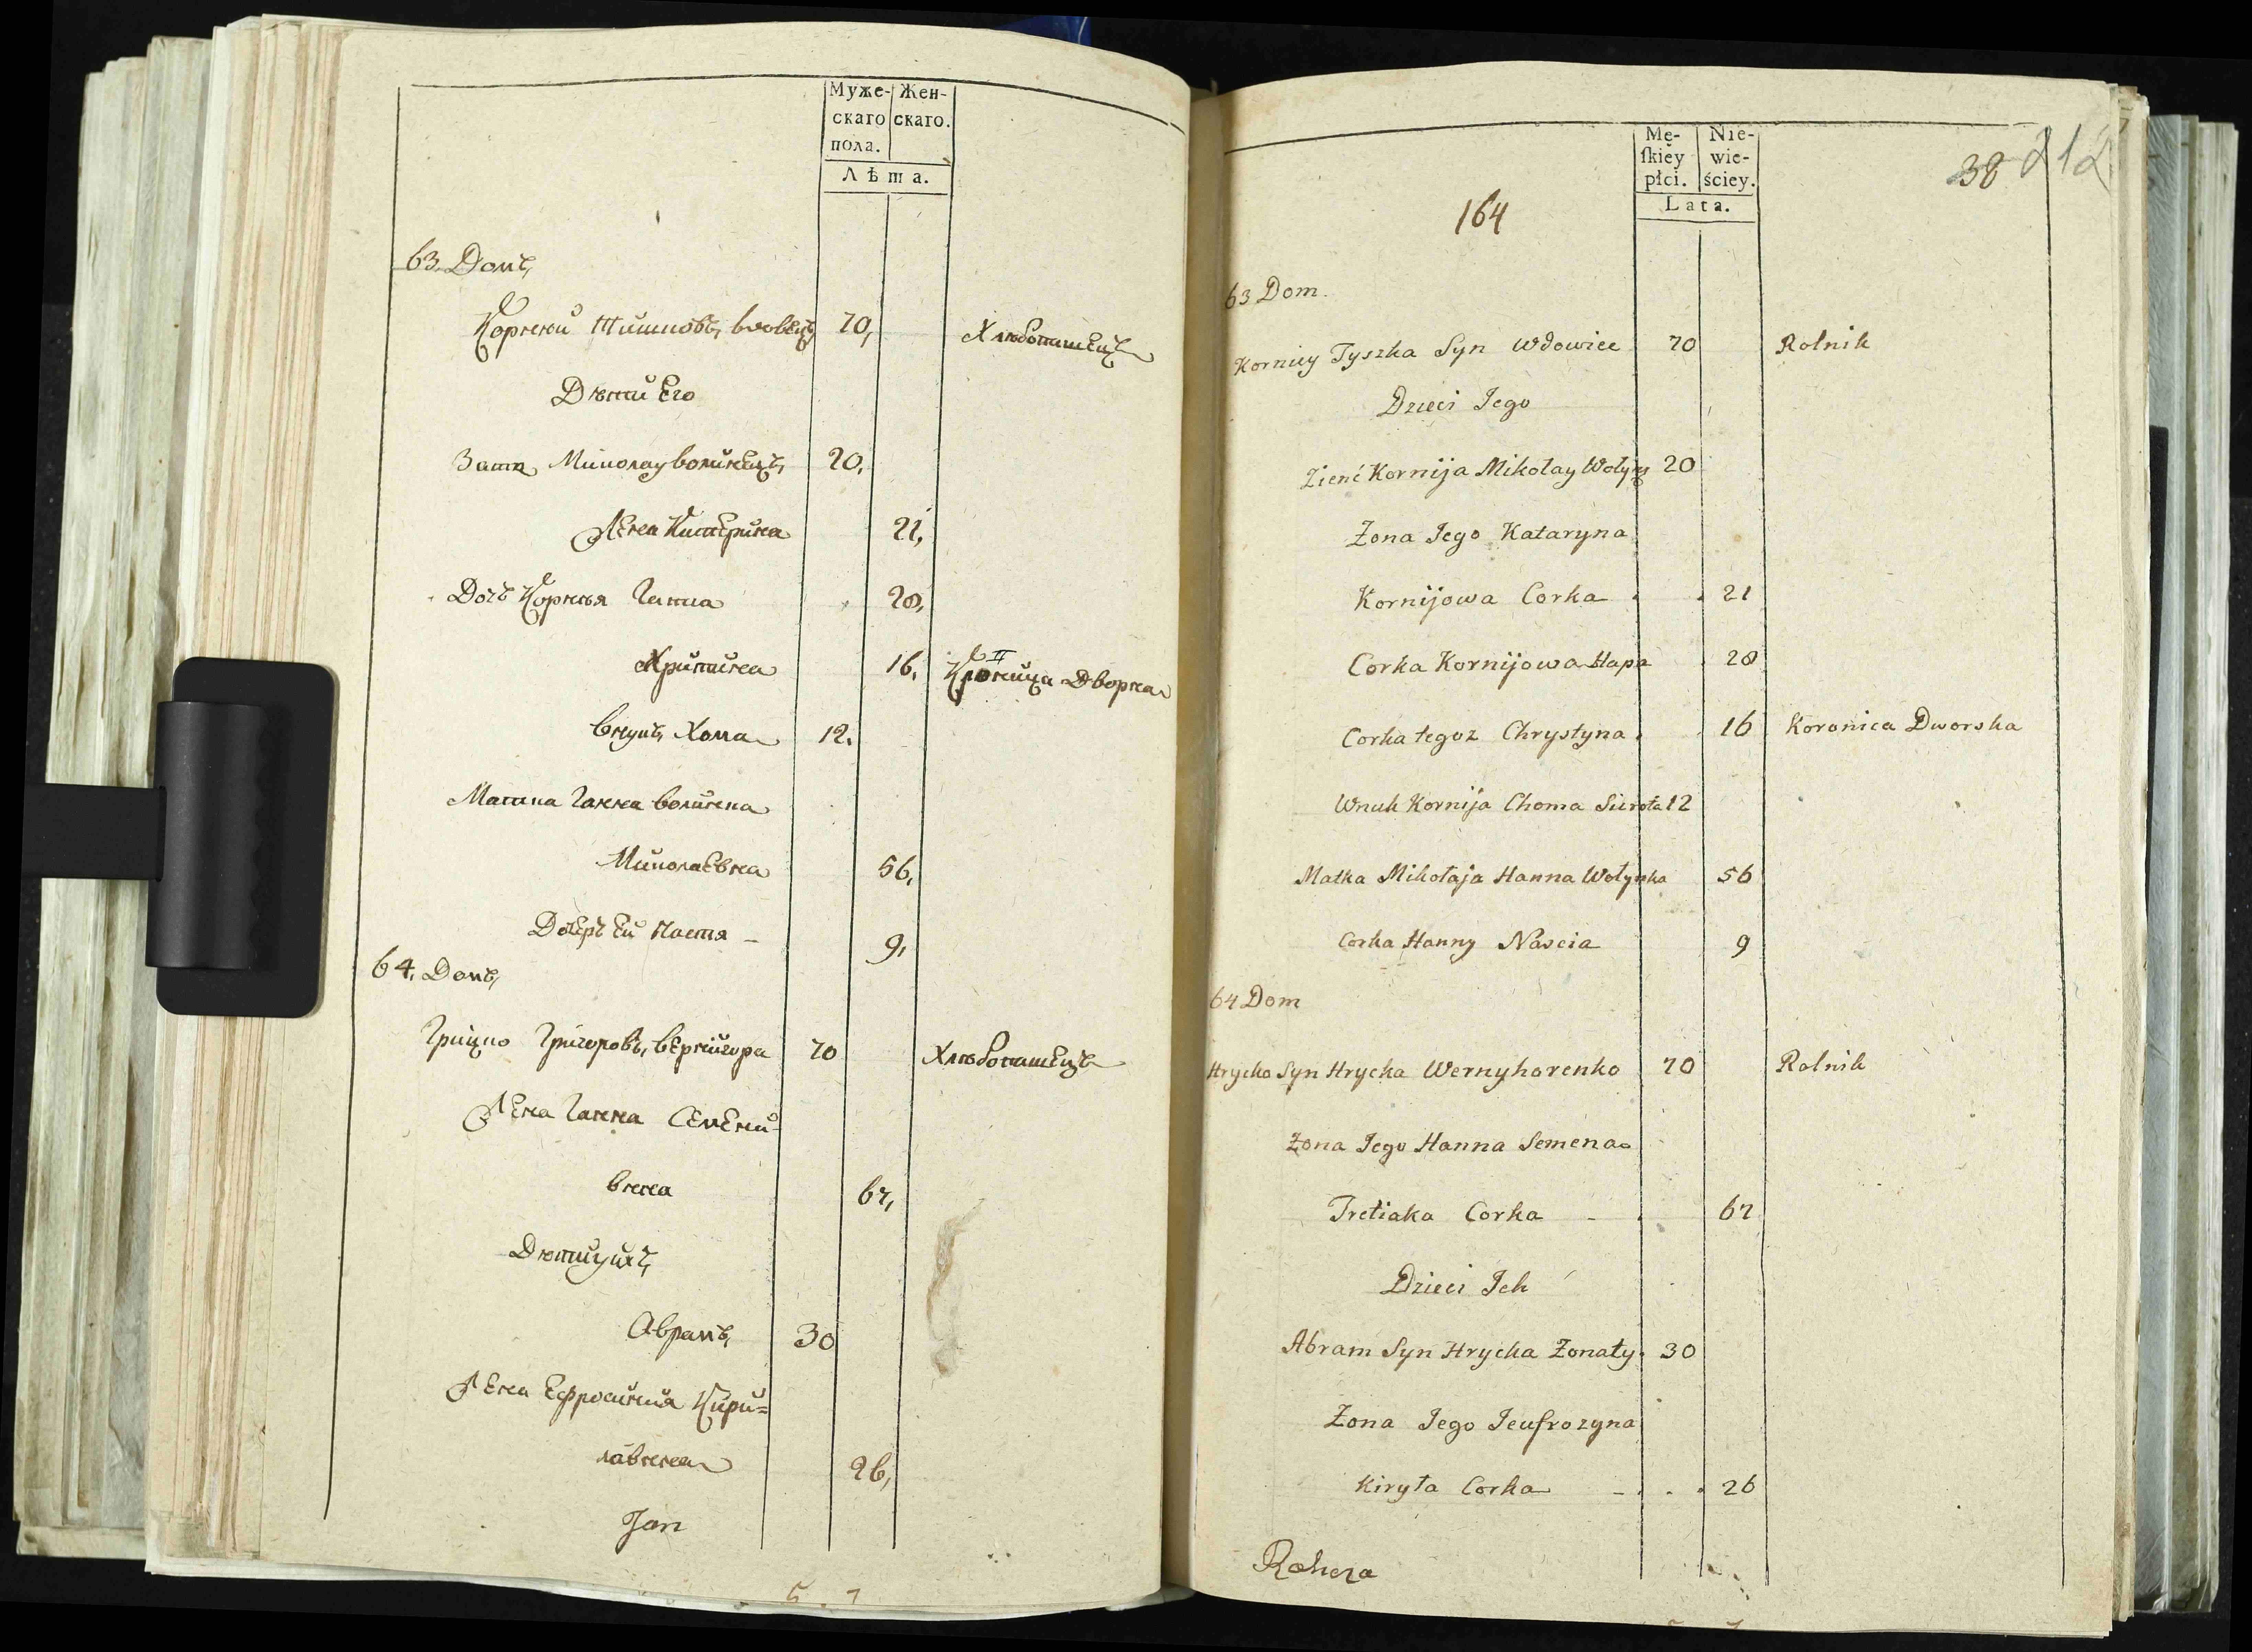 Муже-
скаго
пола.
Жен-
скаго.
Лѣта.
63. Домъ,
Корнѣй Тишковъ, вдовецъ 70, Хлѣбопашецъ
Дѣти Его
Зать Миколау волинецъ, 20,
Жена Катерина 21,
Дочъ Корнѣя Гапка 28,
Христина 16, Дворна
внукъ Хома 12.
Матка Ганна волинка
Миколаевна 56,
Дочеръ Ей Настя - 9,
64. Домъ,
Грицко Григоровъ, вернигора 70 Хлѣбопашецъ
Жена Ганна Семени-
вна 67,
Дѣти ихъ,
Аврамъ, 30
Жена Ефросиния Кири=
лавна 26,
Jan
5 . 7
Mę-
skiey
płci.
Nie-
wie-
ściey.
Lata.
38 212
164
63 Dom.
Korniy Tyszka Syn Wdowiec 70 Rolnik
Dzieci Jego
Zienć Kornija Mikołay Wołyniec 20
Żona Jego Kataryna
Kornijowa Corka . . 21
Corka Kornijowa Hapa 28
Corka tegoz Chrystyna . 16 Koronica Dworska
Wnuk Kornija Choma Sierota 12
Matka Mikołaja Hanna Wołynka 56
Corka Hanny Nascia 9
64 Dom
Hrycko Syn Hrycka Wernyhorenko 70 Rolnik
Żona Jego Hanna Semena
Tretiaka Corka - . 67
Dzieci Ich
Abram Syn Hrycka Żonaty . 30
Żona Jego Jeufrozyna
Kiryła Corka - . . . 26